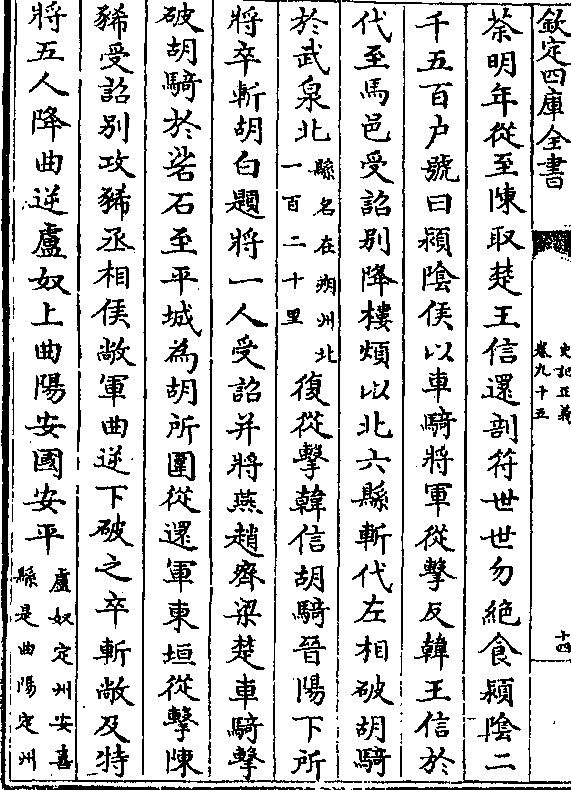 欽定四庫全書
史記正義
卷九十五
十四
荼明年從至陳取楚王信還剖符世世勿絕食潁陰二
千五百户號曰潁陰侯以車騎將軍從擊反韓王信於
代至馬邑受詔别降樓煩以北六縣斬代左相破胡騎
於武泉北縣名在朔州北一百二十里復從擊韓信胡騎晉陽下所
將卒斬胡白題將一人受詔并將燕趙齊梁楚車騎擊
破胡騎於硰石至平城為胡所圍從還軍東垣從擊陳
豨受詔别攻豨丞相侯敞軍曲逆下破之卒斬敞及特
將五人降曲逆盧奴上曲陽安國安平盧奴定州安喜縣是曲陽定州